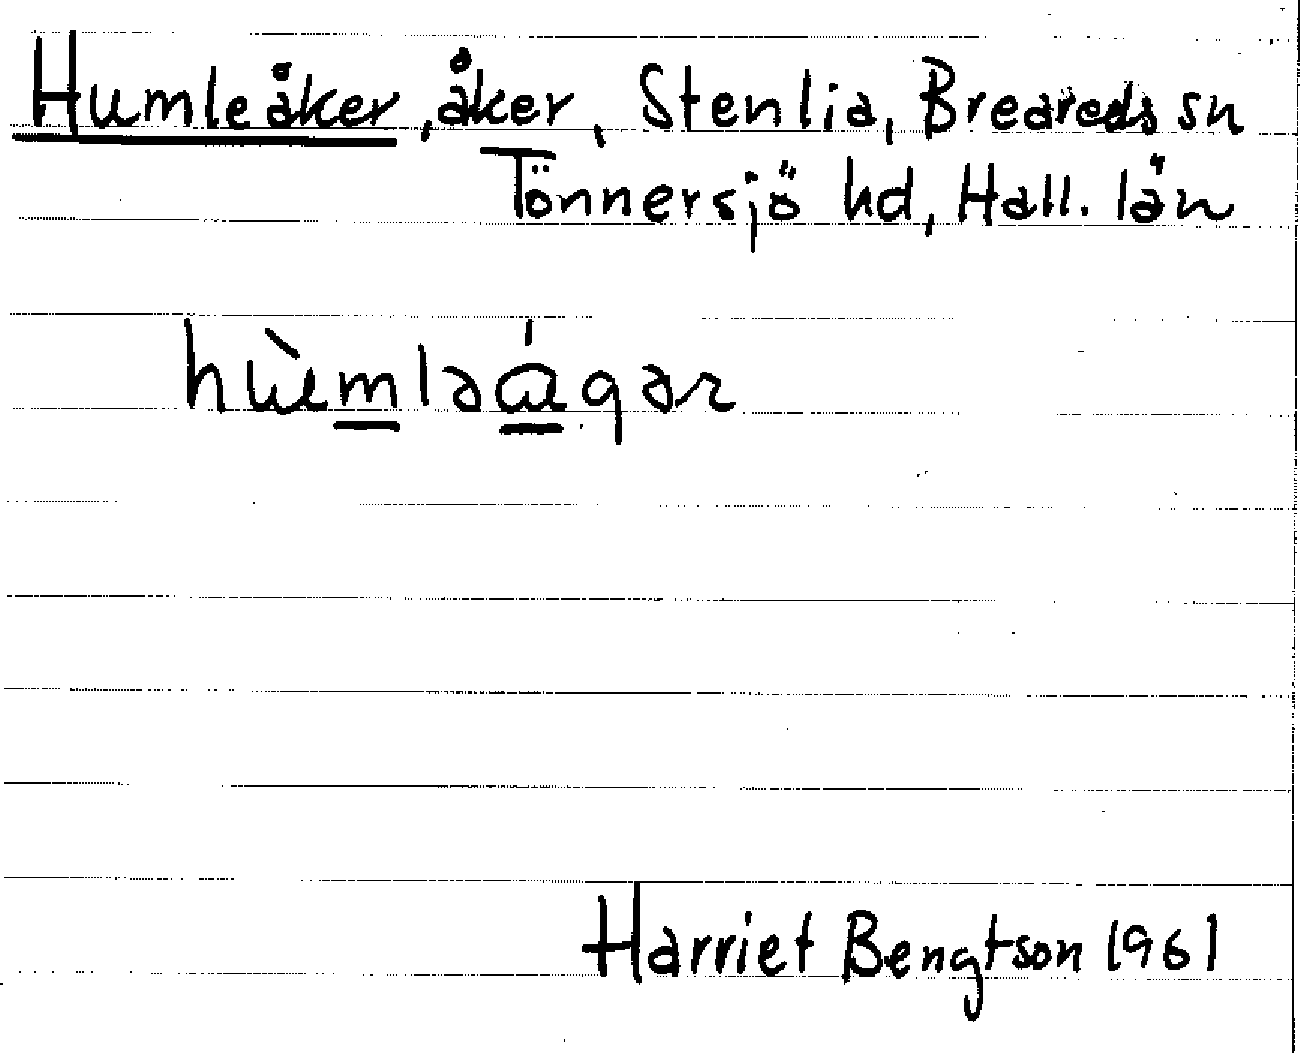 Humleåker, åker, Stenlia, Breareds sn
Tönnersjö hd, Hall. län
hùmlaágar
Harriet Bengtson 1961